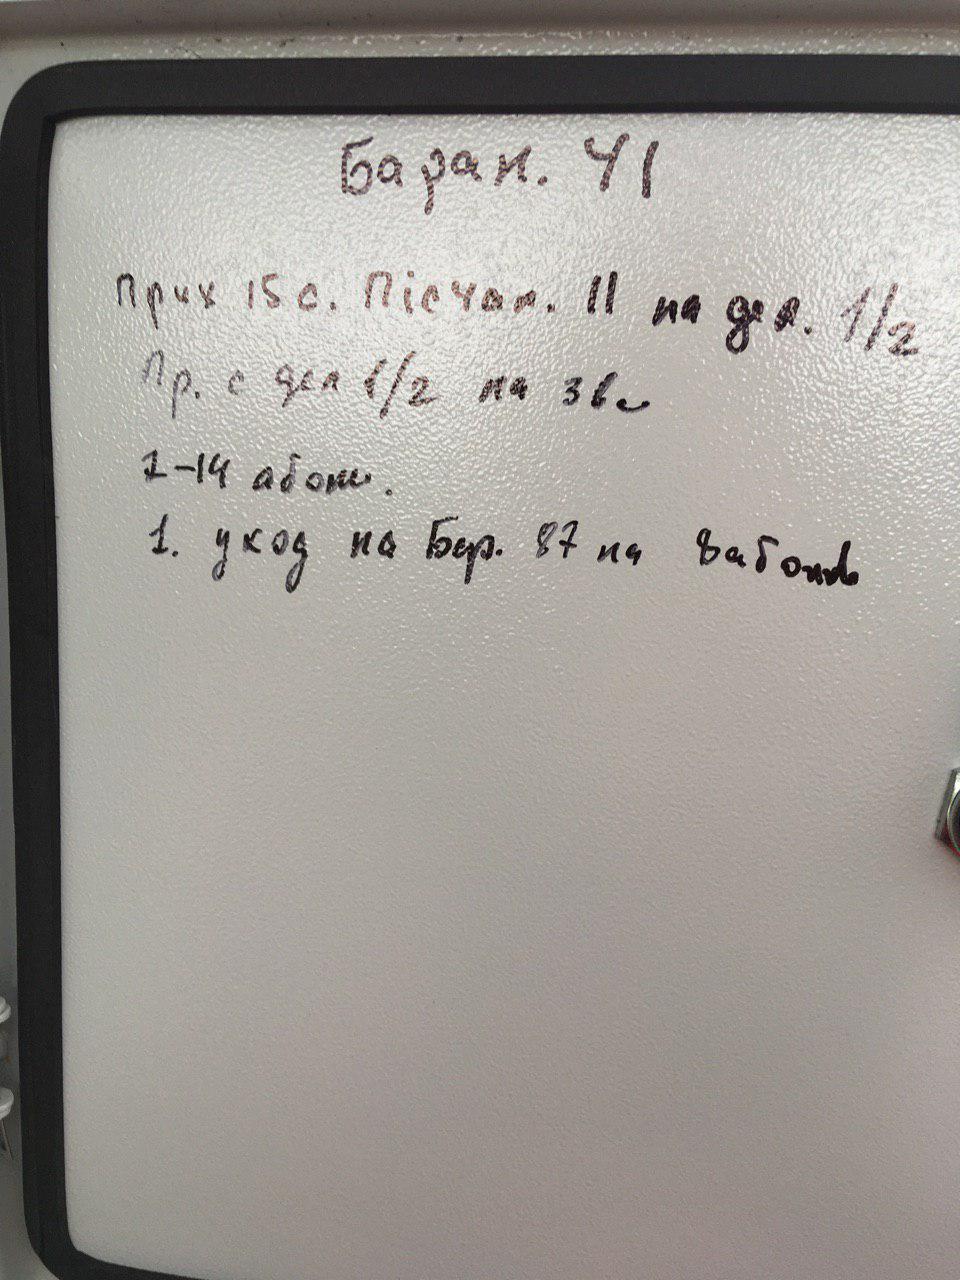 Баран. 41
Прих 15 с. Пісчан. 11 на дел. 1/2
Пр. с дел 1/2 на
1-14 абон.
1. уход на Бер. 87 на